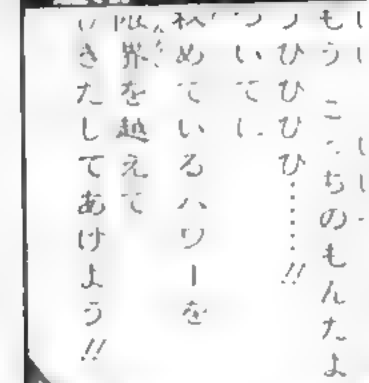 もうこっちのもんだよ
うひひひ……!!
ついでに
秘めているパワーを
限界を越えて
引きだしてあげよう!!